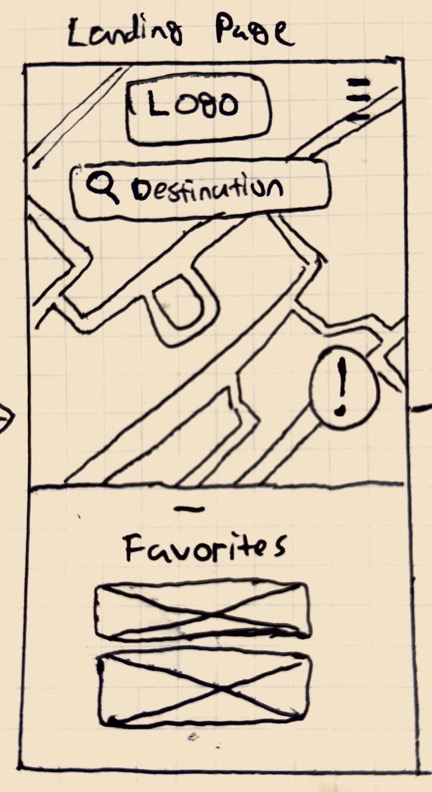 Landing Page
Logo
Destination
!
Favorites